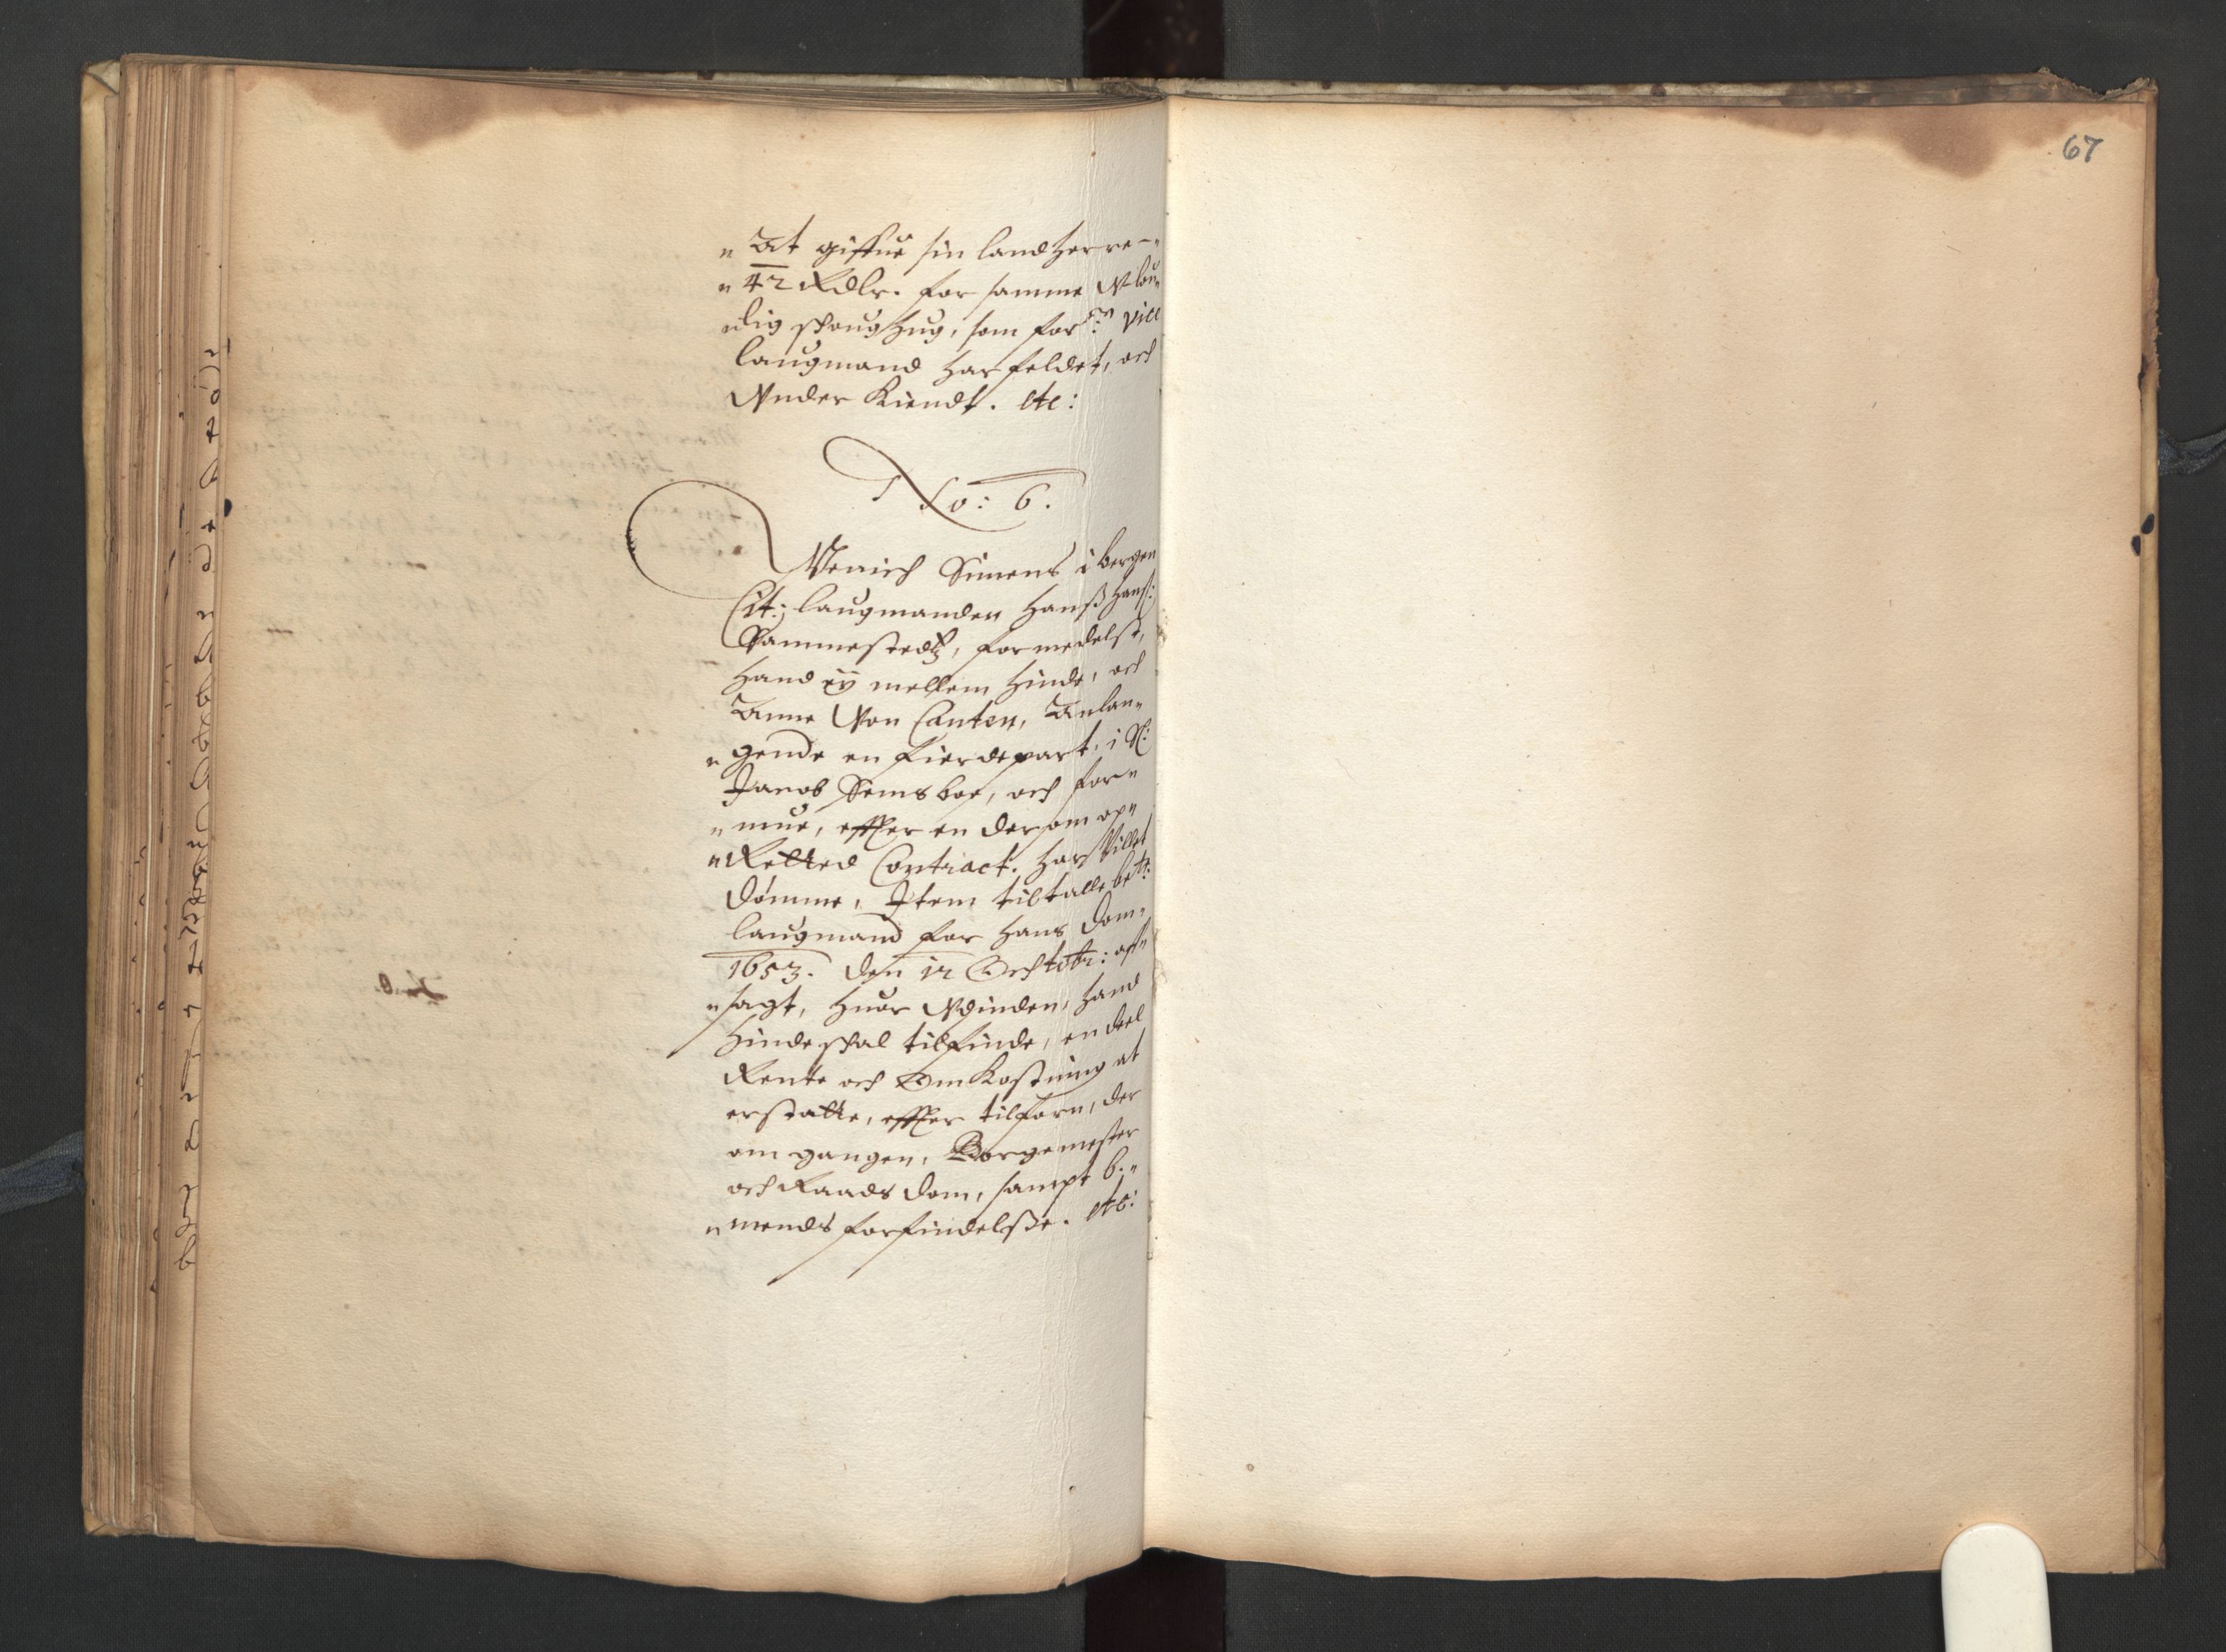 67
" At giffue sin landherre-"
" 42 Rdlr. for samme Vlou"
ndig skoug hug, som for.ne vice
laugmand har feldet, och
Vnder Kiendt. etc:
No: 6.
Venich Simens i bergen
Cit: laugmanden Hanß Hanß:
Sammestedtz, formedelst,
Hand ey mellem hinde, och
Anne Von Canten, Anlan"
" gende en fierdepart, i Sl:
Jacob Sems boe, och for"
" mue, effter en der om op"
" Retted Contract. har Villet
dømme, Item tiltalle bet.te
laugmand for hans dom,
1653. den 12 Octobr: aff"
" sagt, huor Vdinden, hand
hinde skal tilfinde, en deel
Rente och Omkostning at
erstatte, effter tilforn, der
om gangen, Borgemester
och Raads dom, sampt 6."
" mends forfindelsße. etc: